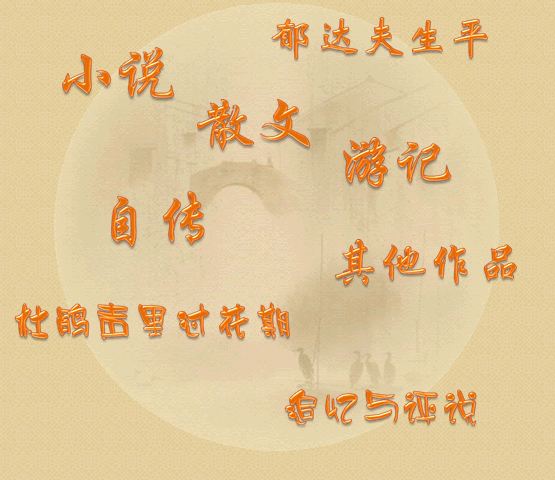 郁达夫生平
小说
散文
游记
自传
其他作品
杜鹃声里过花期
追忆与评说